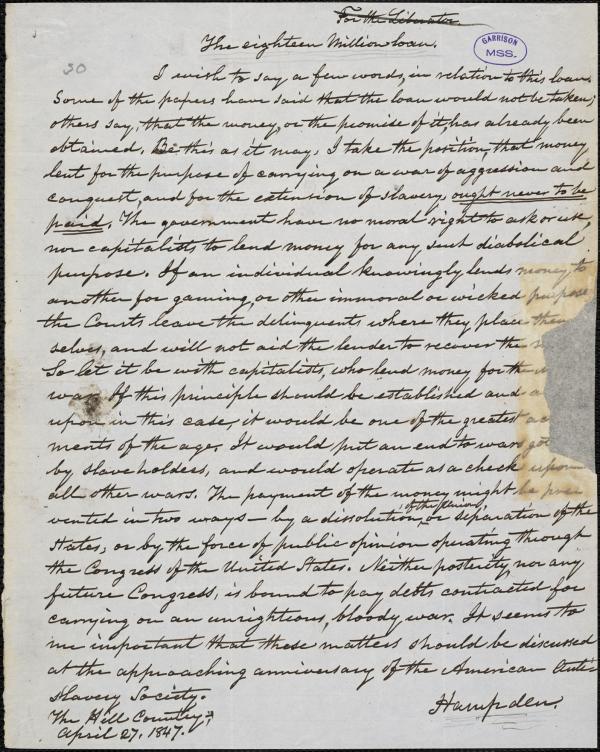 For the Liberator.
The eighteen Million loan.
GARRISON
MSS.
30
I wish to say a few words, in relation to this loan.
Some of the papers have said that the loan would not be taken;
others say, that the money, or the promise of it, has already been
obtained. Be this as it may, I take the position, that money,
lent for the purpose of carrying on a war of aggression and
conquest, and for the extension of slavery, ought never to be
paid. The government have no moral right to ask or use,
nor capitalists to lend money for any such diabolical
purpose. If an individual knowingly lends money to
another for gaming, or other immoral or wicked purpose
the Courts leave the delinquents where they place them
selves, and will not aid the lender to recover the
So let it be with capitalists, who lend money for the
war. If this principle should be established and
upon in this case, it would be one of the greatest
ments of the age. It would put an end to wars got
by slaveholders, and would operate as a check upon
all other wars. The payment of the money might be pre
vented in two ways – by a dissolution of the Union, or separation of the
States, or by the force of public opinion operating through
the Congress of the United States. Neither posterity, nor any
future Congress, is bound to pay debts contracted for
carrying on an unrighteous, bloody war. It seems to
me important that these matters should be discussed
at the approaching anniversary of the American Anti-
Slavery Society.
Hampden.
The Hill Country,
April 27, 1847.